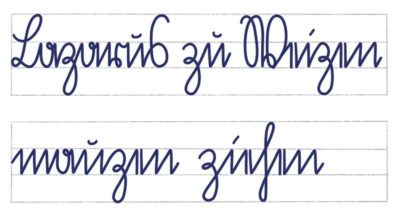 Lazarus zu Weizen
mauzen ziehen